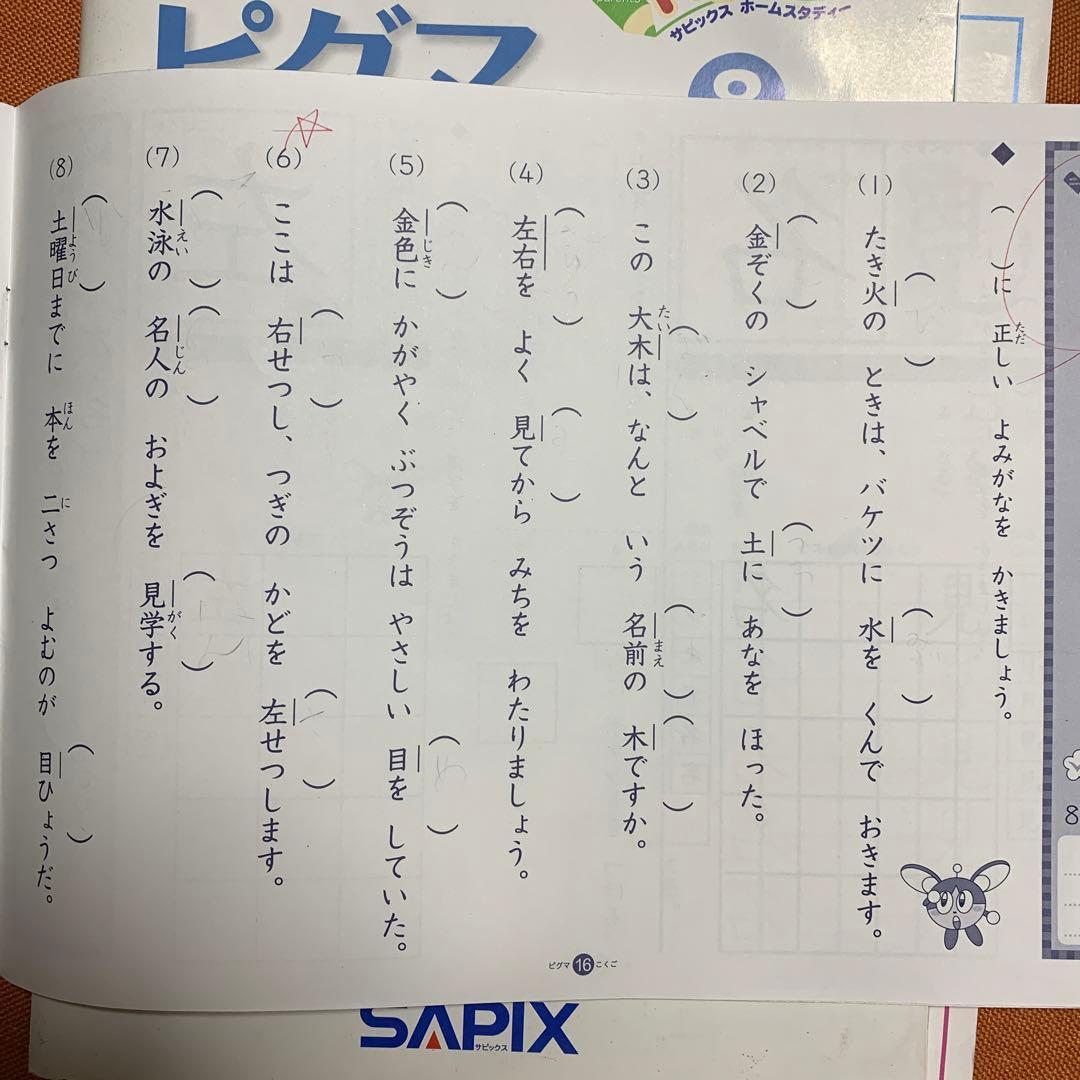 parents
サピックス ホームスタディー
ピグマ
8
◆ ( )に 正しい よみがなを かきましょう。
ただ
(1) たき火の ときは、バケツに 水を くんで おきます。
(2) 金ぞくの シャベルで 土に あなを ほった。
(3) この 大木は、なんと いう 名前の 木ですか。
たい
まえ
(4) 左右を よく 見てから みちを わたりましょう。
(5) 金色に かがやく ぶつぞうは やさしい 目を していた。
じき
(6) ここは 右せつし、つぎの かどを 左せつします。
(7) 水泳の 名人の およぎを 見学する。
えい
じん
がく
(8) 土曜日までに 本を 二さつ よむのが 目ひょうだ。
ようび
ほん
に
ピグマ 16 こくご
8
SAPIX
サピックス